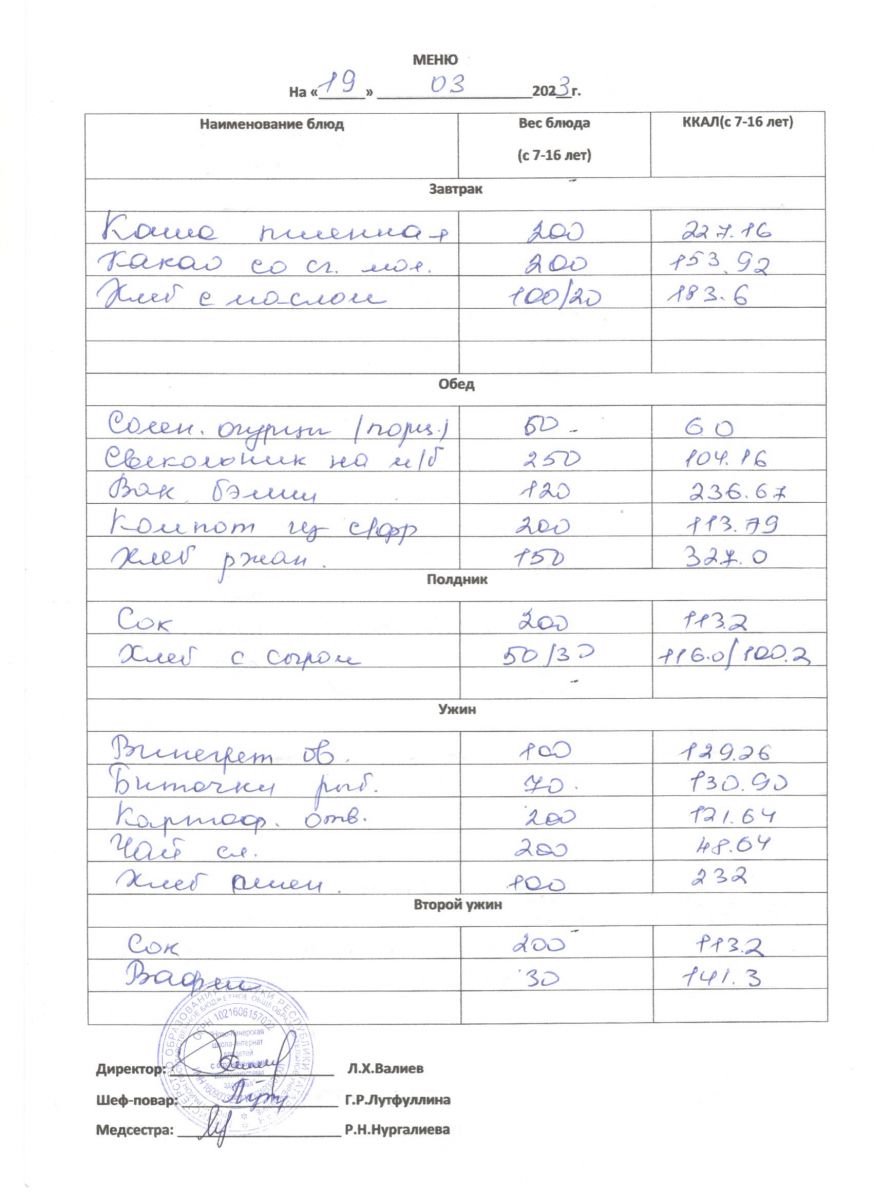 МЕНЮ
На «19» 03 2023г.
Наименование блюд Вес блюда (с 7-16 лет) ККАЛ(с 7-16 лет)
Завтрак
Каша пшенная 200 227.16
Какао со сг. мол. 200 153.92
Хлеб с маслом 100/20 183.6
Обед
Солен. огурцы (порц.) 50 60
Свекольник на м/б 250 104.16
Вак бэлиш 120 236.67
Компот из с/фр 200 113.79
Хлеб ржан. 150 327.0
Полдник
Сок 200 113.2
Хлеб с сыром 50/30 116.0/100.2
Ужин
Винегрет ов. 100 129.26
Биточки рыб. 70. 130.90
Картоф. отв. 200 121.64
Чай сл. 200 48.64
Хлеб пшен. 100 232
Второй ужин
Сок 200 113.2
Вафли 30 141.3
ОГРН 1021606157022
школа-интернат
Директор: Л.Х.Валиев
Шеф-повар: Г.Р.Лутфуллина
Медсестра: Р.Н.Нургалиева